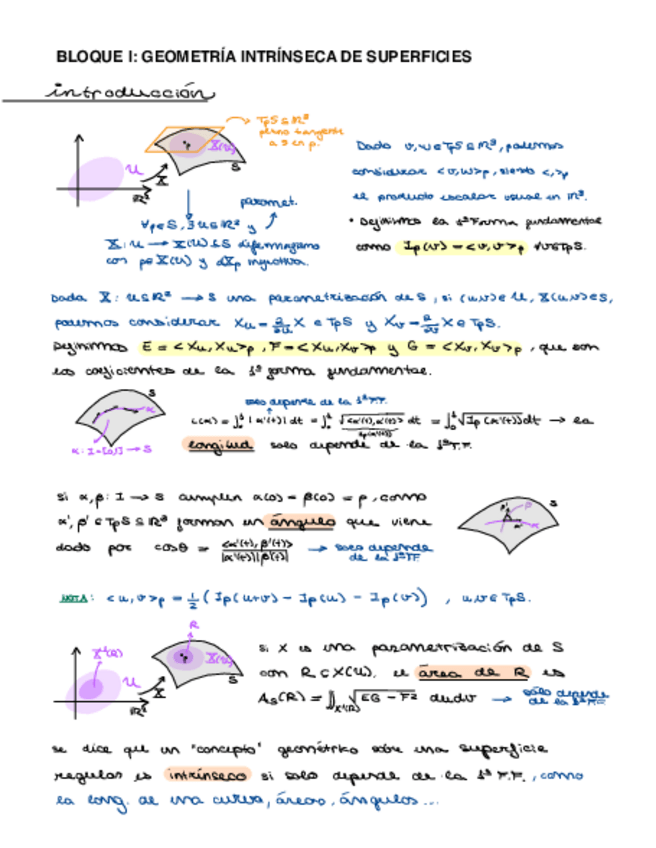 BLOQUE I: GEOMETRÍA INTRÍNSECA DE SUPERFICIES
introducción
TpS ⊆ ℝ³
plano tangente
a S en p.
p
X(U)
S
U
X
ℝ²
paramet.
∀p∈S, ∃ U⊆ℝ² y
X: U → X(U)⊆S difeomorfismo
con p∈X(U) y dXp inyectiva.
Dado v,w∈TpS⊆ℝ³, podemos
considerar <v,w>p, siendo <,>p
el producto escalar usual en ℝ³.
• Definimos la 1ª Forma fundamental
como Ip(v) = <v,v>p ∀v∈TpS.
Dada X: U⊆ℝ² → S una parametrización de S, si (u,v)∈U, X(u,v)∈S,
podemos considerar Xu = ∂/∂u X ∈ TpS y Xv = ∂/∂v X ∈ TpS.
Definimos E = <Xu,Xu>p, F = <Xu,Xv>p y G = <Xv,Xv>p, que son
los coeficientes de la 1ª forma fundamental.
S
α
α: I=[0,l] → S
solo depende de la 1ªF.F.
L(α) = ∫ |α'(t)| dt = ∫ √<α'(t),α'(t)> dt = ∫ √Ip(α'(t)) dt → la
Ip(α'(t))
longitud solo depende de la 1ªF.F.
Si α,β: I → S cumplen α(0) = β(0) = p, como
α',β' ∈ TpS ⊆ ℝ³ forman un ángulo que viene
dado por cosθ = <α'(t),β'(t)> / |α'(t)||β'(t)| → solo depende
de la 1ªF.F.
S
β
α
NOTA: <u,v>p = 1/2 (Ip(u+v) - Ip(u) - Ip(v)), u,v∈TpS.
R
X⁻¹(R)
U
X
X(U)
S
ℝ²
Si X es una parametrización de S
con R⊂X(U), el área de R es
As(R) = ∬X⁻¹(R) √EG - F² dudv → sólo depende
de la 1ªF.F.
Se dice que un "concepto" geométrico sobre una superficie
regular es intrínseco si solo depende de la 1ª F.F., como
la long. de una curva, áreas, ángulos...